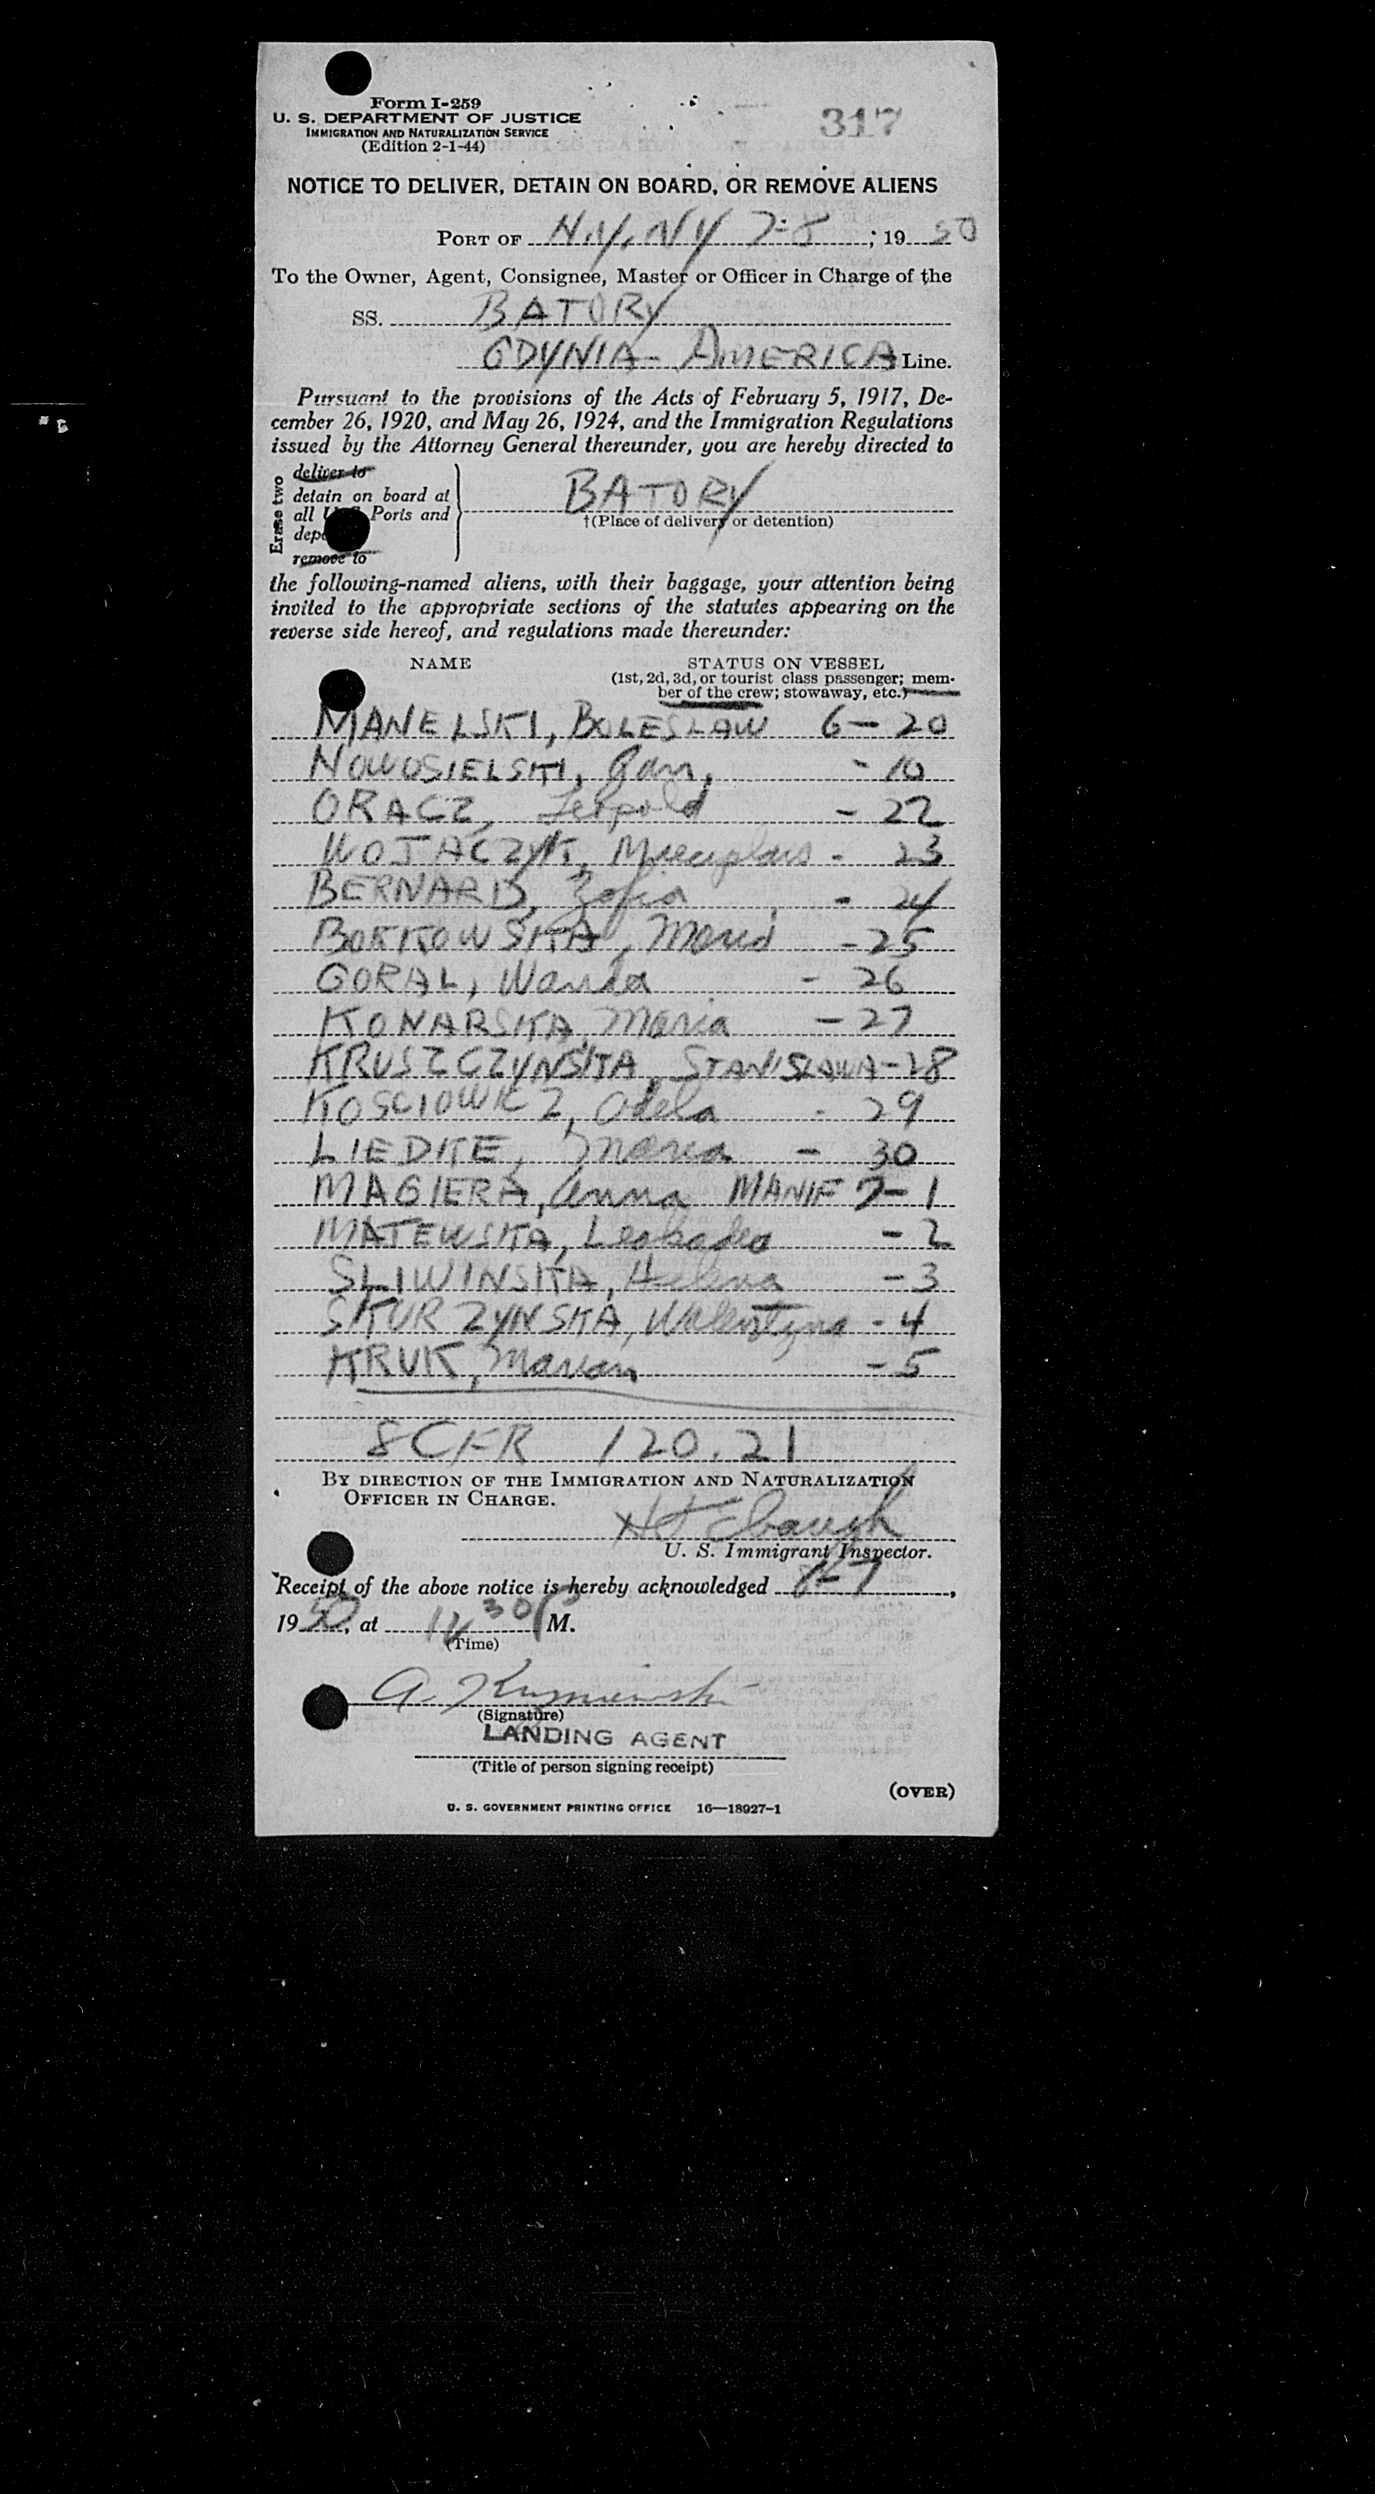 Form I-259
U. S. DEPARTMENT OF JUSTICE
IMMIGRATION AND NATURALIZATION SERVICE
(Edition 2-1-44)
317
NOTICE TO DELIVER, DETAIN ON BOARD, OR REMOVE ALIENS
PORT OF N.Y. NY 7-8, 1950
To the Owner, Agent, Consignee, Master or Officer in Charge of the
SS. BATORY
GDYNIA-AMERICA Line.
Pursuant to the provisions of the Acts of February 5, 1917, De-
cember 26, 1920, and May 26, 1924, and the Immigration Regulations
issued by the Attorney General thereunder, you are hereby directed to
Erase two
deliver to
detain on board at
all Ports and
remove to
BATORY
†(Place of delivery or detention)
the following-named aliens, with their baggage, your attention being
invited to the appropriate sections of the statutes appearing on the
reverse side hereof, and regulations made thereunder:
NAME STATUS ON VESSEL
(1st, 2d, 3d, or tourist class passenger; mem-
ber of the crew; stowaway, etc.)
MANELSKI, BOLESLAW 6-20
NOWOSIELSKI, Jan, -10
ORACZ, Leopold -22
WOJACZYK, -23
BERNARD, Zofia -24
BORKOWSKA, Maria -25
GORAL, Wanda -26
KONARSKA, Maria -27
KRUSZCZYNSKA, STANISLAWA -28
KOSCIOWICZ, Adela -29
LIEDKE, Maria -30
MAGIERA, Anna MANIF 7-1
MATEWSKA, Leokadia -2
SLIWINSKA, Helena -3
SKURZYNSKA, Walentyna -4
KRUK, Marian -5
8 CFR 120.21
BY DIRECTION OF THE IMMIGRATION AND NATURALIZATION
OFFICER IN CHARGE.
U. S. Immigrant Inspector.
Receipt of the above notice is hereby acknowledged
1950, at 12 30 P M.
(Time)
(Signature)
LANDING AGENT
(Title of person signing receipt)
(OVER)
U. S. GOVERNMENT PRINTING OFFICE 16—18927-1